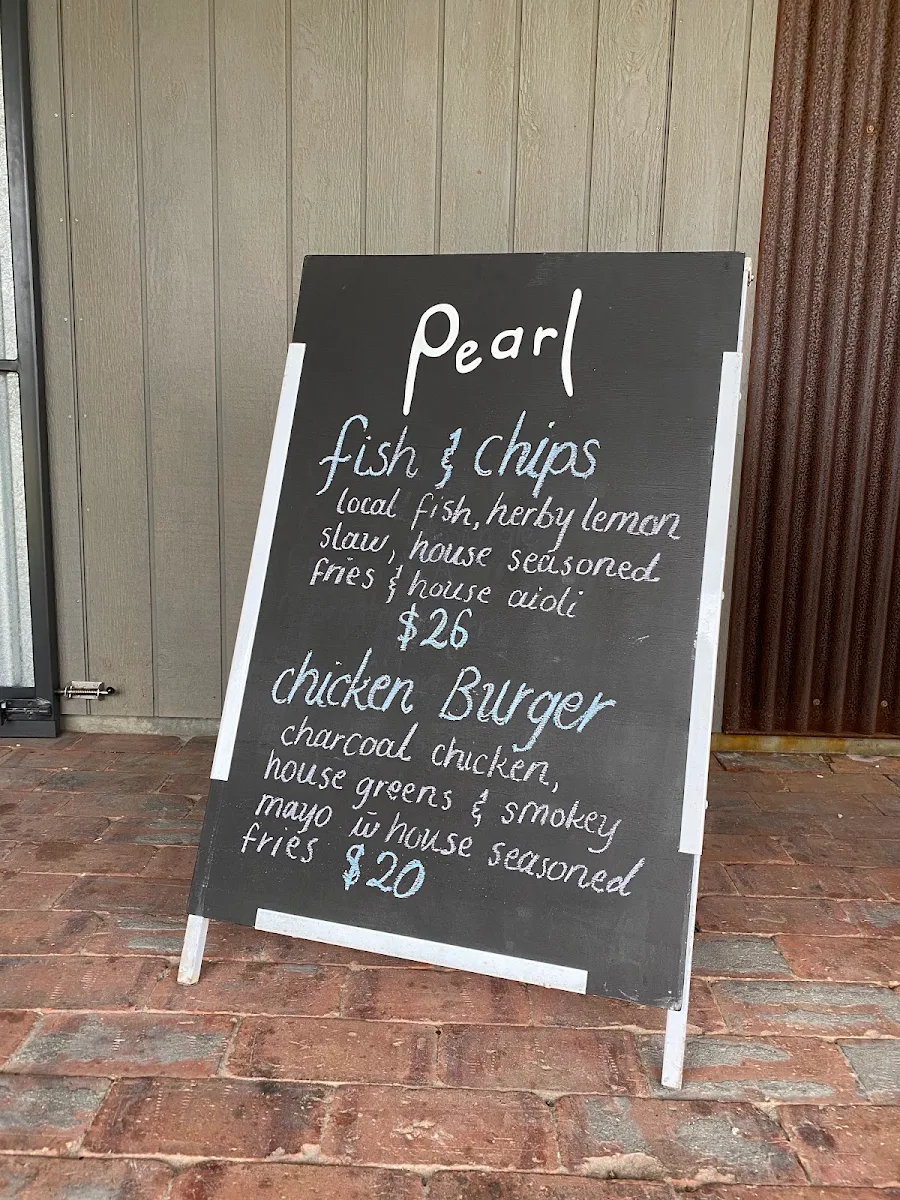 Pearl
fish & chips
local fish, herby lemon
slaw, house seasoned
fries & house aioli
$26
chicken Burger
charcoal chicken,
house greens & smokey
mayo w̄ house seasoned
fries $20